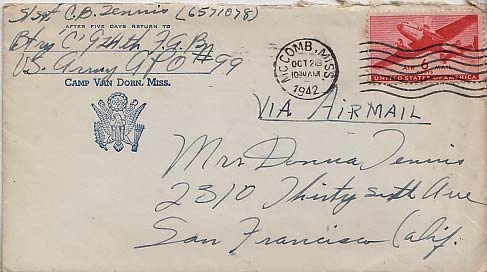 S/Sgt. C.B. Tennis (6571078)
AFTER FIVE DAYS RETURN TO
Btry "C" 924th F.A. Bn
U.S. Army APO #99
CAMP VAN DORN, MISS.
MC COMB, MISS.
OCT 28
1030 AM
1942
AIR MAIL
6¢
UNITED STATES OF AMERICA
VIA AIRMAIL
Mrs Donna Tennis
2310 Thirty sixth Ave
San Francisco Calif.